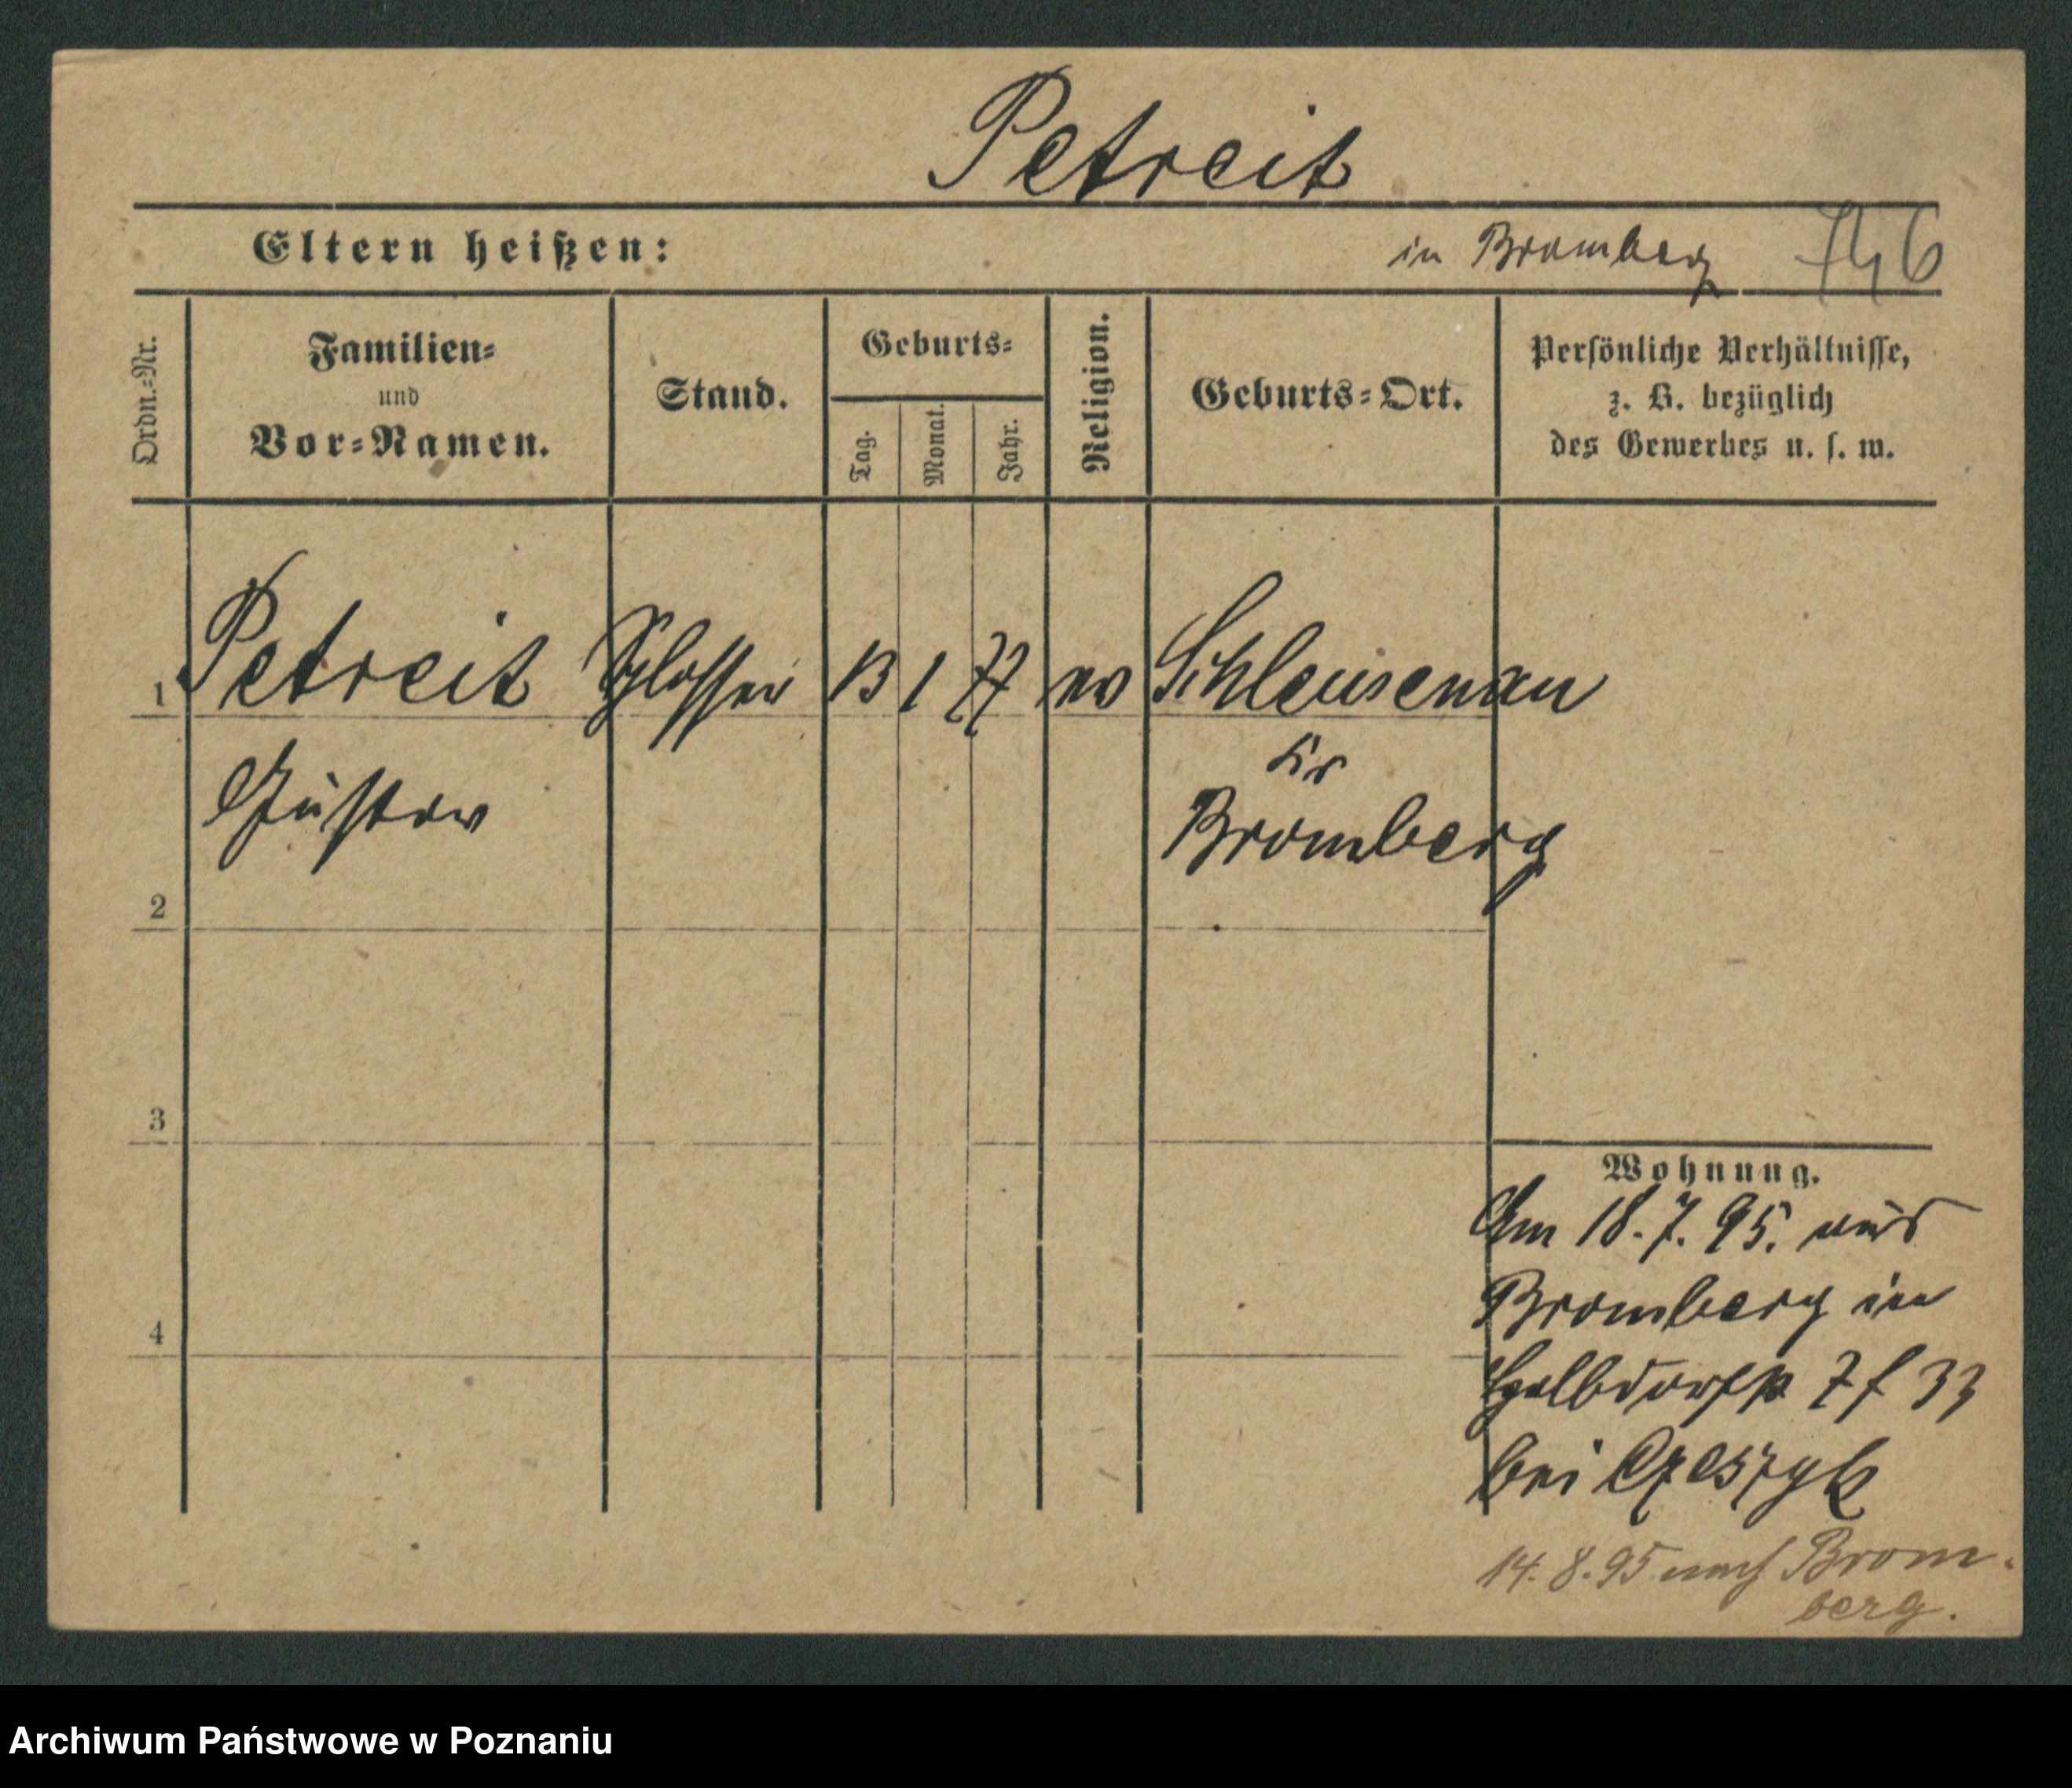 Petreit
Eltern heißen: in Bromberg 746
Ordn.-Nr.
Familien-
und
Vor-Namen.
Stand.
Geburts-
Tag.
Monat.
Jahr.
Religion.
Geburts-Ort.
Persönliche Verhältnisse,
z. B. bezüglich
des Gewerbes u. s. w.
1 Petreit Schlosser 13 1 77 ev Schleusenau
Kr
Gustav Bromberg
2
3
4
Wohnung.
Am 18.7.95. aus
Bromberg in
33
bei
14.8.95 nach Brom-
berg.
Archiwum Państwowe w Poznaniu